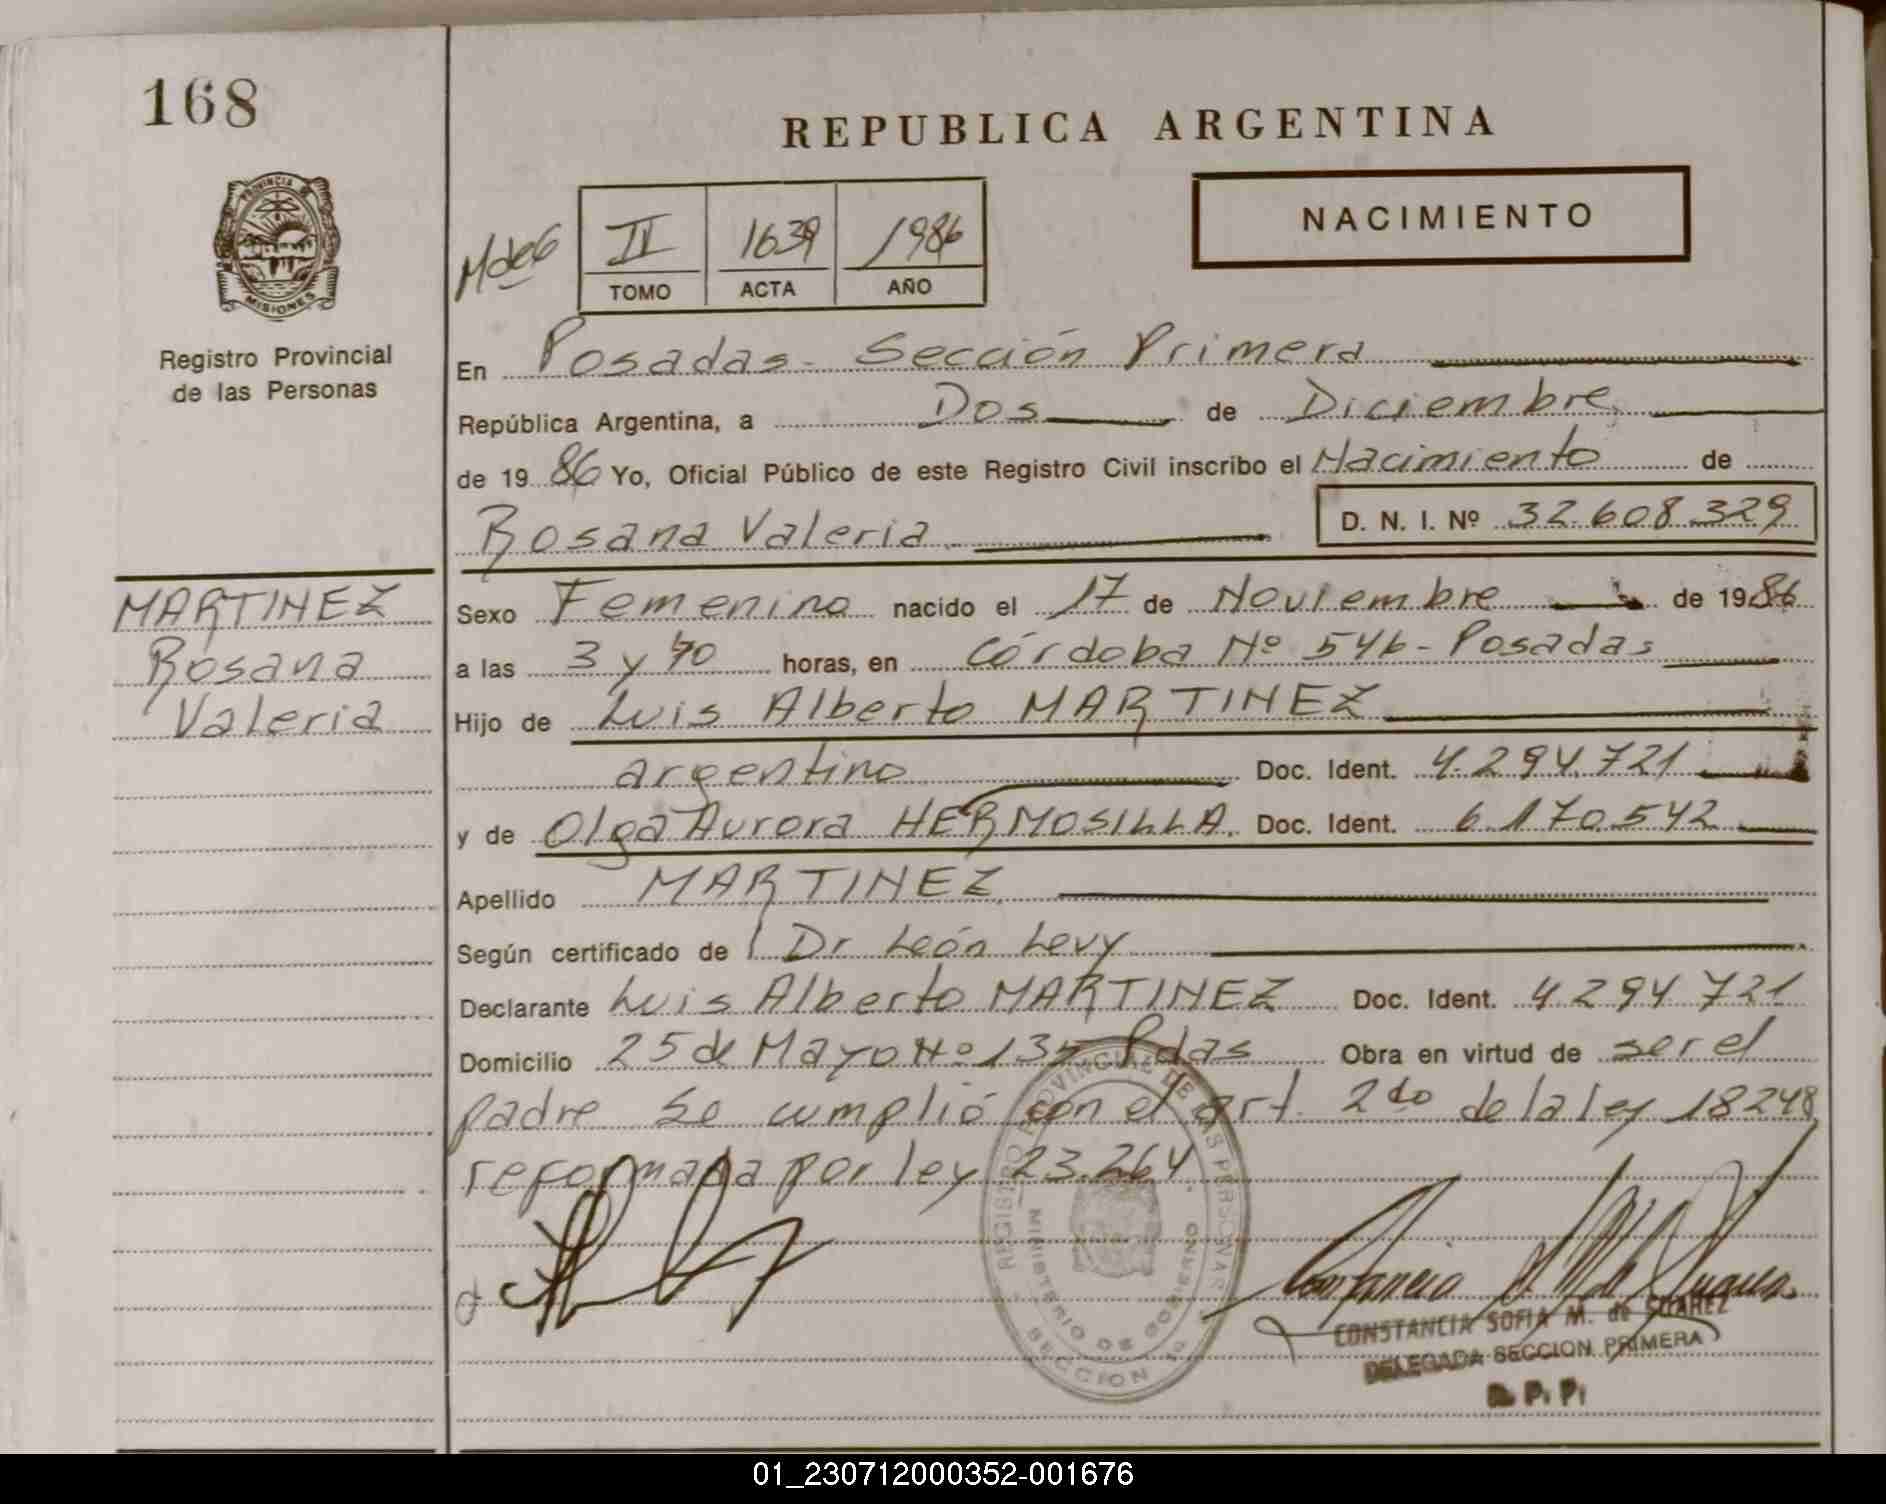 168
REPUBLICA ARGENTINA
PROVINCIA DE
MISIONES
Registro Provincial
de las Personas
M de G
IV 1639 1986
TOMO ACTA AÑO
NACIMIENTO
En Posadas - Sección Primera
República Argentina, a Dos de Diciembre
de 19 86 Yo, Oficial Público de este Registro Civil inscribo el Nacimiento de
Rosana Valeria D. N. I. Nº 32.608.329
MARTINEZ
Rosana
Valeria
Sexo Femenino nacido el 17 de Noviembre de 1986
a las 3 y 40 horas, en Córdoba Nº 546 - Posadas
Hijo de Luis Alberto MARTINEZ
argentino Doc. Ident. 4.294.721
y de Olga Aurora HERMOSILLA. Doc. Ident. 6.170.542
Apellido MARTINEZ
Según certificado de Dr León Levy
Declarante Luis Alberto MARTINEZ Doc. Ident. 4.294.721
Domicilio 25 de Mayo Nº 135 Pdas Obra en virtud de ser el
padre se cumplió con el art. 2do de la ley 18248
reformada por ley 23.264.
REGISTRO PROVINCIAL DE LAS PERSONAS
MINISTERIO DE GOBIERNO
SECCION 1a
CONSTANCIA SOFIA M. de SUAREZ
DELEGADA SECCION PRIMERA
R. P. P.
01_230712000352-001676